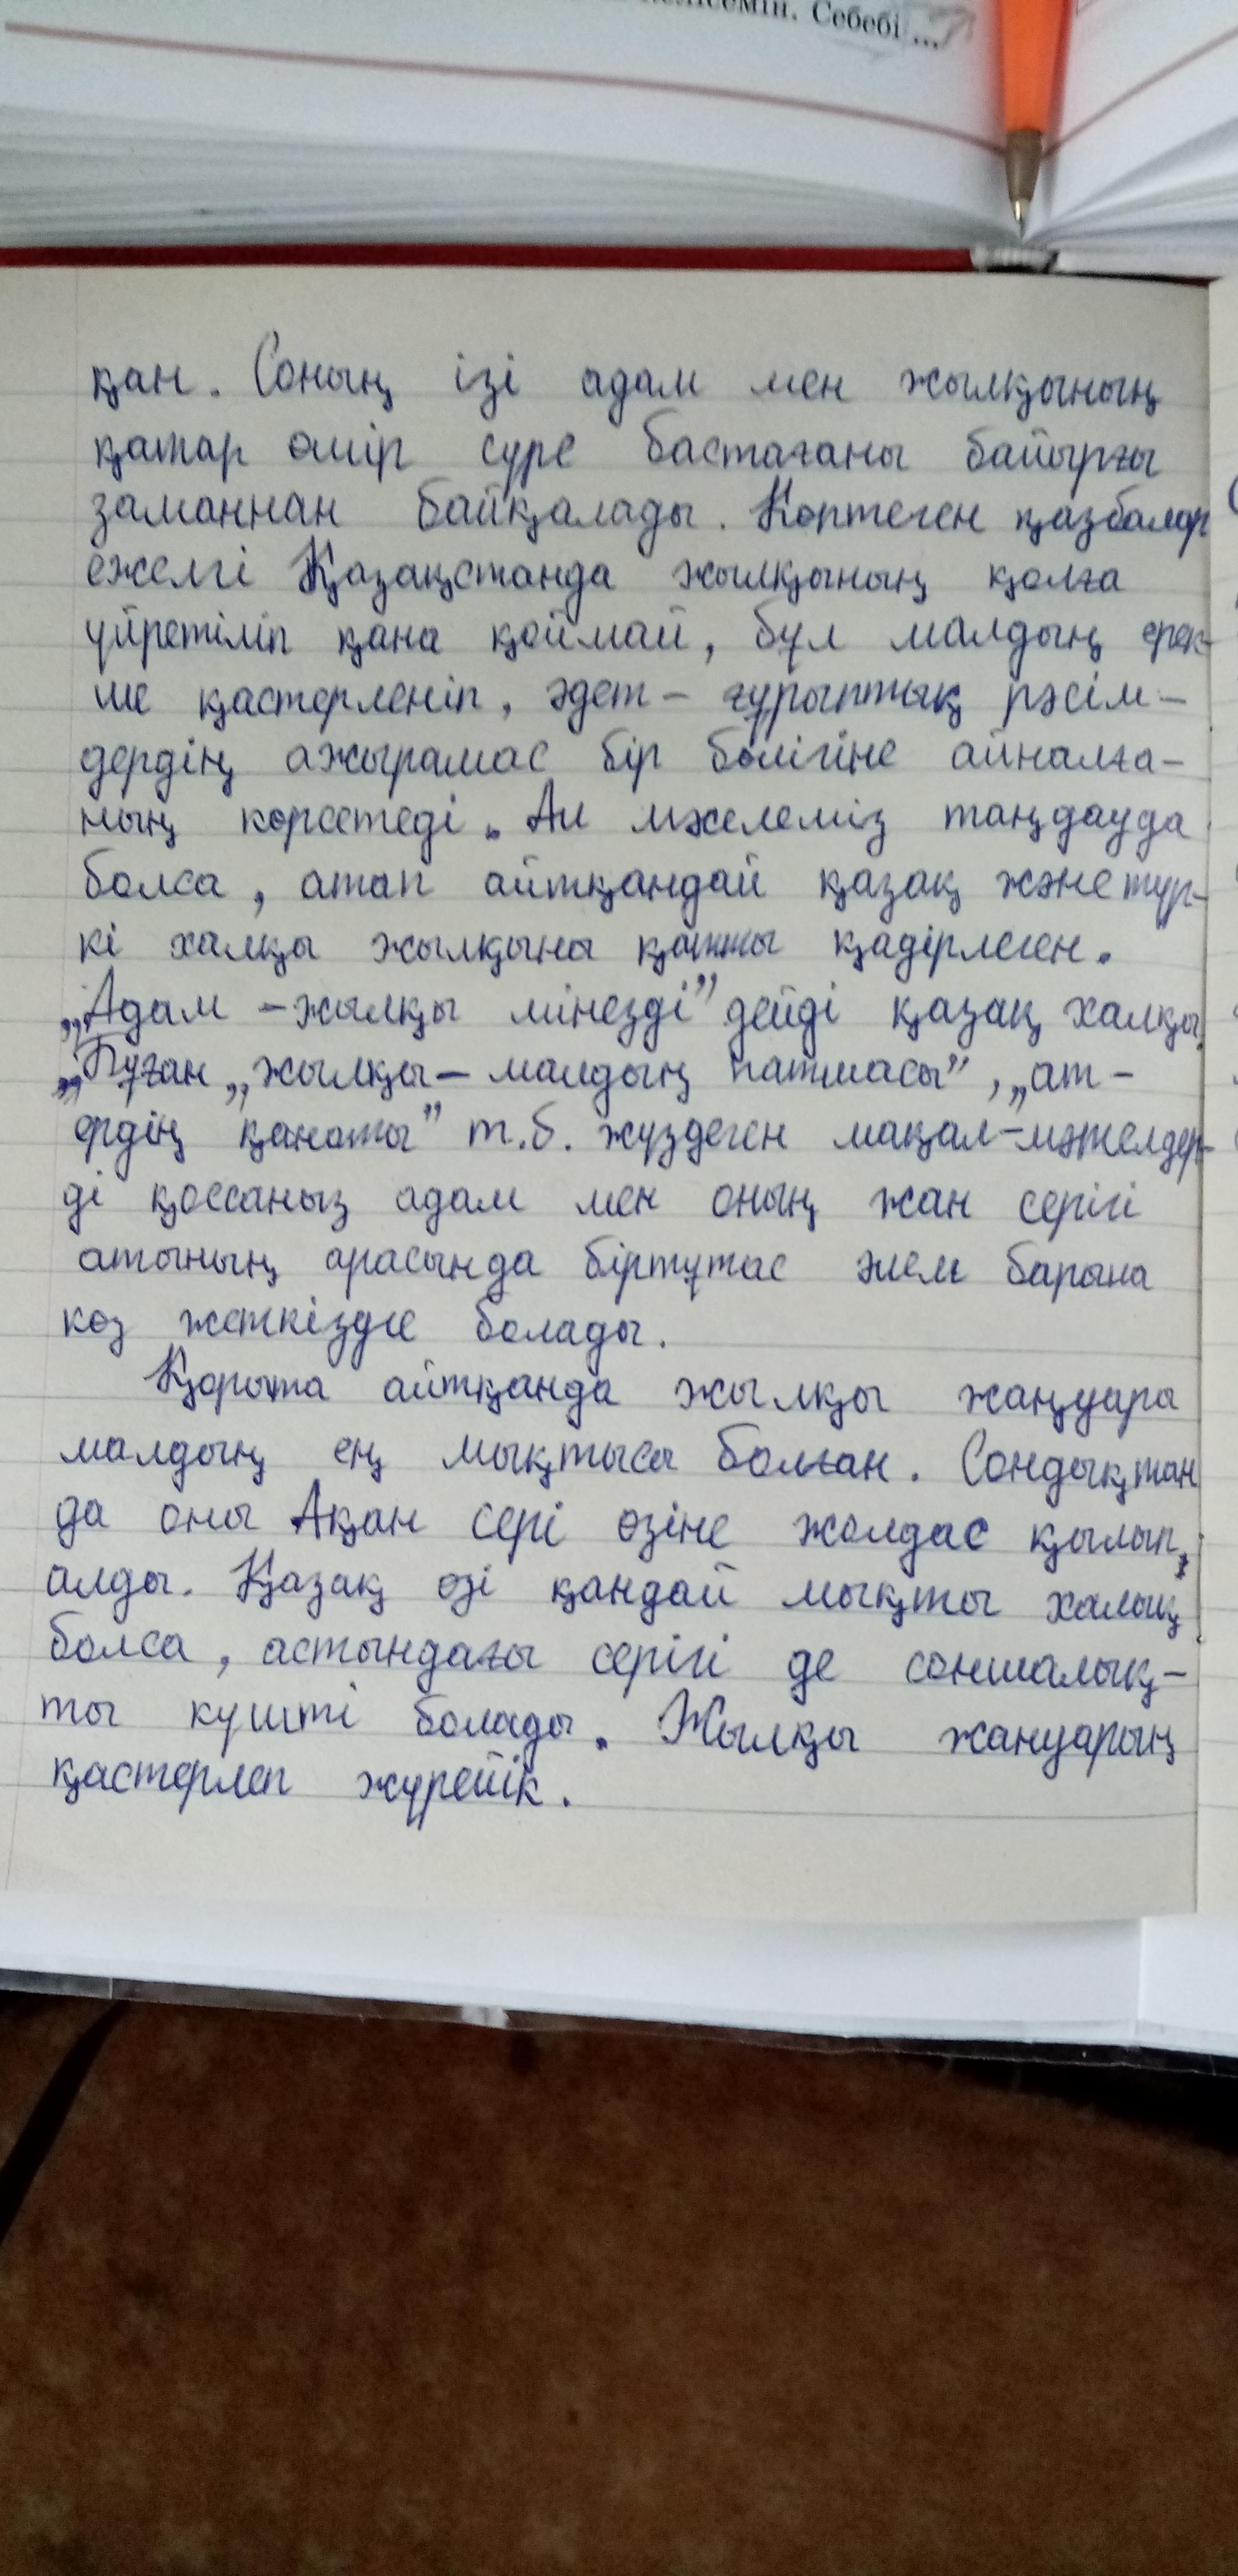 Себебі ...
қан. Соның ізі адам мен жылқының
қатар өмір сүре бастағаны байырғы
заманнан байқалады. Көптеген қазбалар
ежелгі Қазақстанда жылқының қолға
үйретіліп қана қоймай, бұл малдың ерек-
ше қастерленіп, әдет-ғұрыптық рәсім-
дердің ажырамас бір бөлігіне айналға-
ның көрсетеді. Ал мәселеміз таңдауда
болса, атап айтқандай қазақ және түр-
кі халқы жылқыны қатты қадірлеген.
„Адам - жылқы мінезді" дейді қазақ халқы.
Бұған „жылқы - малдың патшасы", „ат -
ердің қанаты" т.б. жүздеген мақал-мәтелдер-
ді қоссаңыз адам мен оның жан серігі
атының арасында біртұтас әлем барына
көз жеткізуге болады.
Қорыта айтқанда жылқы жаңуары
малдың ең мықтысы болған. Сондықтан
да оны Ақан сері өзіне жолдас қылып
алды. Қазақ өзі қандай мықты халық
болса, астындағы серігі де соншалық-
ты күшті болады. Жылқы жануарың
қастерлеп жүрейік.